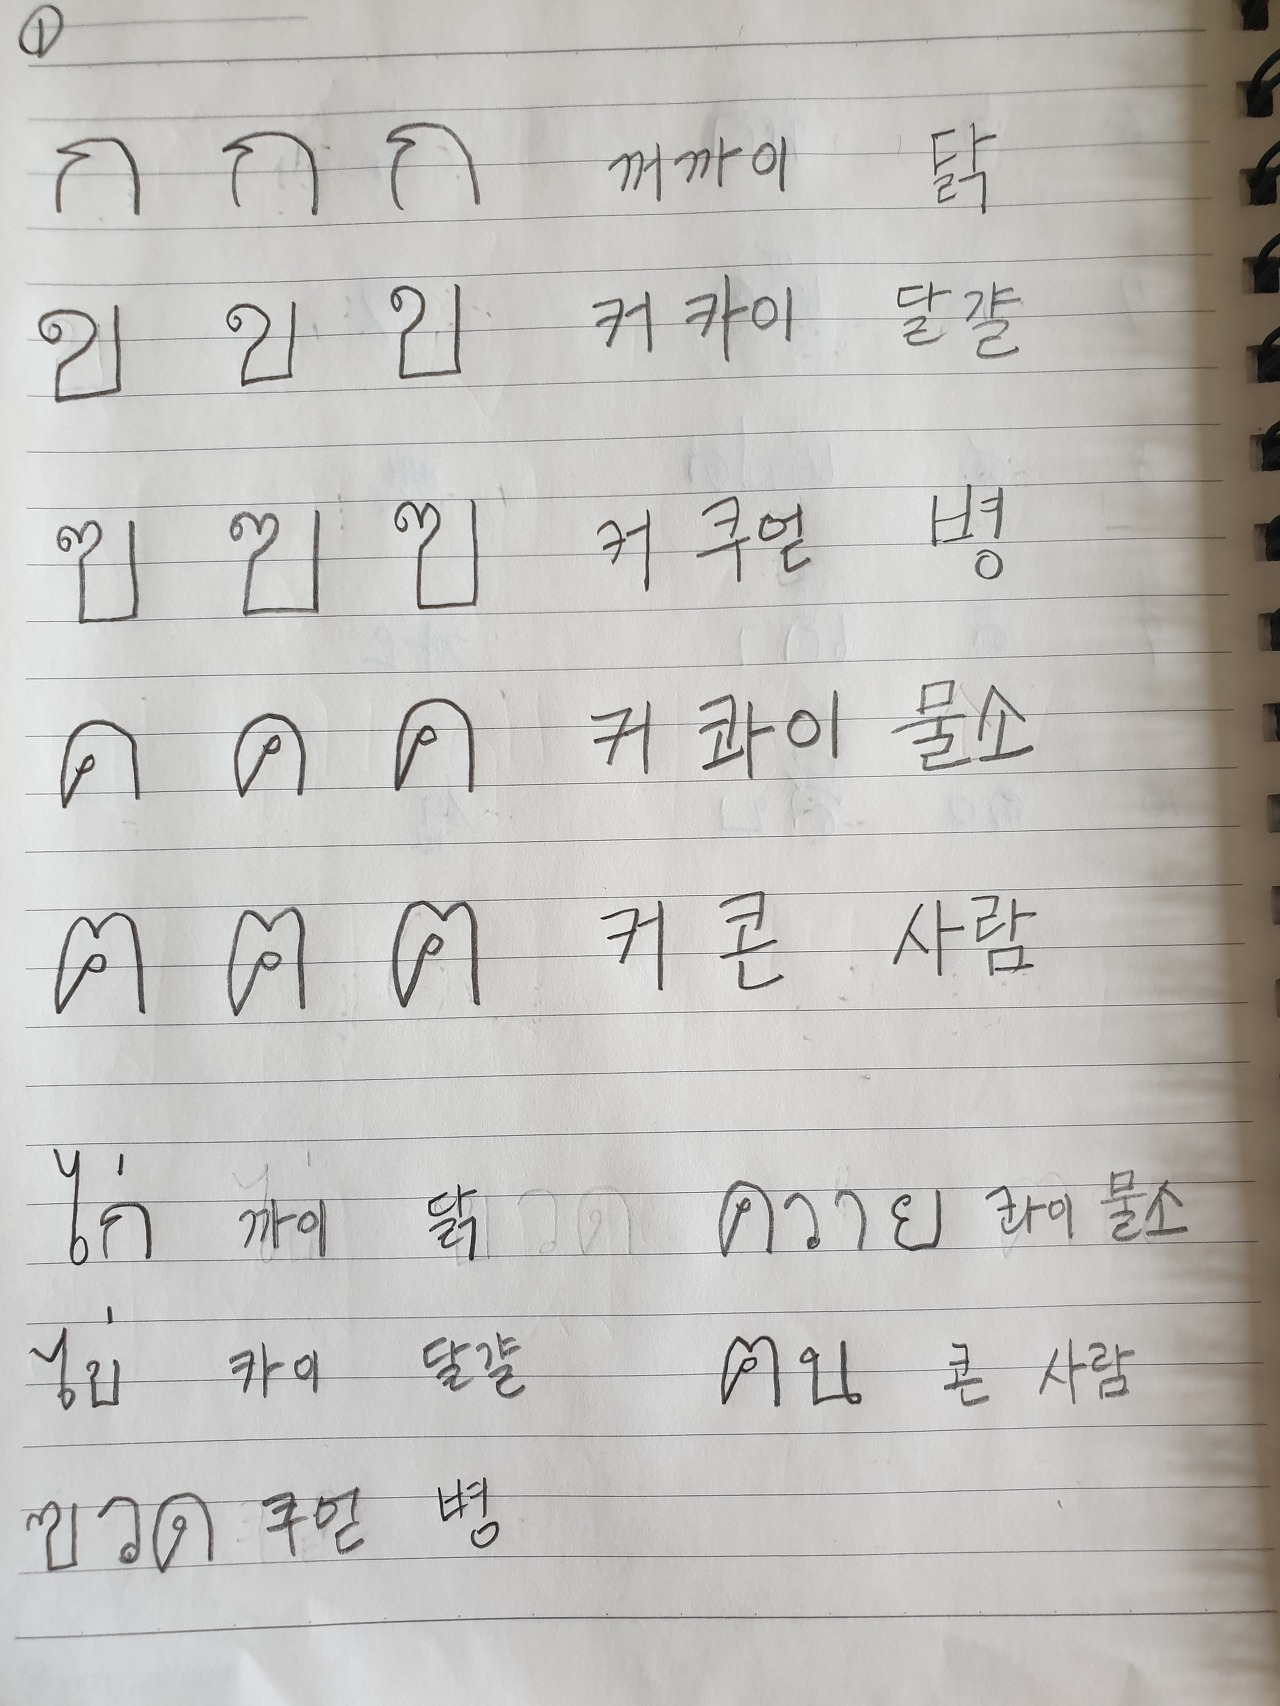 ①
ก ก ก 꺼 까이 닭
ข ข ข 커 카이 달걀
ฃ ฃ ฃ 커 쿠얻 병
ค ค ค 커 콰이 물소
ฅ ฅ ฅ 커 콘 사람
ไก่ 까이 닭 ควาย 콰이 물소
ไข่ 카이 달걀 ฅน 콘 사람
ฃวด 쿠얻 병